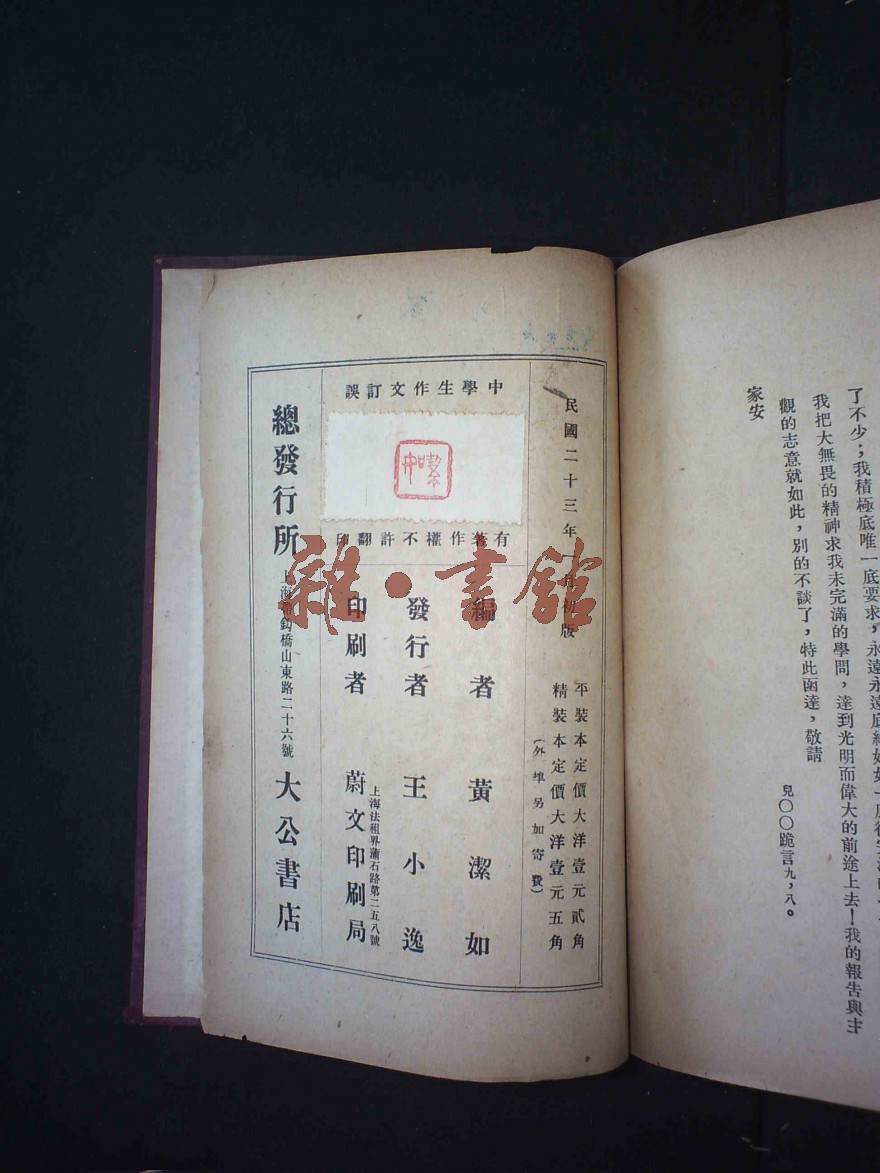 了不少；我積極底唯一底要求，永遠永遠底
我把大無畏的精神求我未完滿的學問，達到光明而偉大的前途上去！我的報告與主
觀的志意就如此，別的不談了，特此函達，敬請
家安
兒〇〇跪言九，八。
民國二十三年一月初版
平裝本定價大洋壹元貳角
精裝本定價大洋壹元五角
（外埠另加寄費）
中學生作文訂誤
有著作權不許翻印
編者 黃潔如
發行者 王小逸
印刷者 蔚文印刷局
上海法租界蒲石路第二五八號
總發行所 上海帶鈎橋山東路二十六號 大公書店
雜·書館